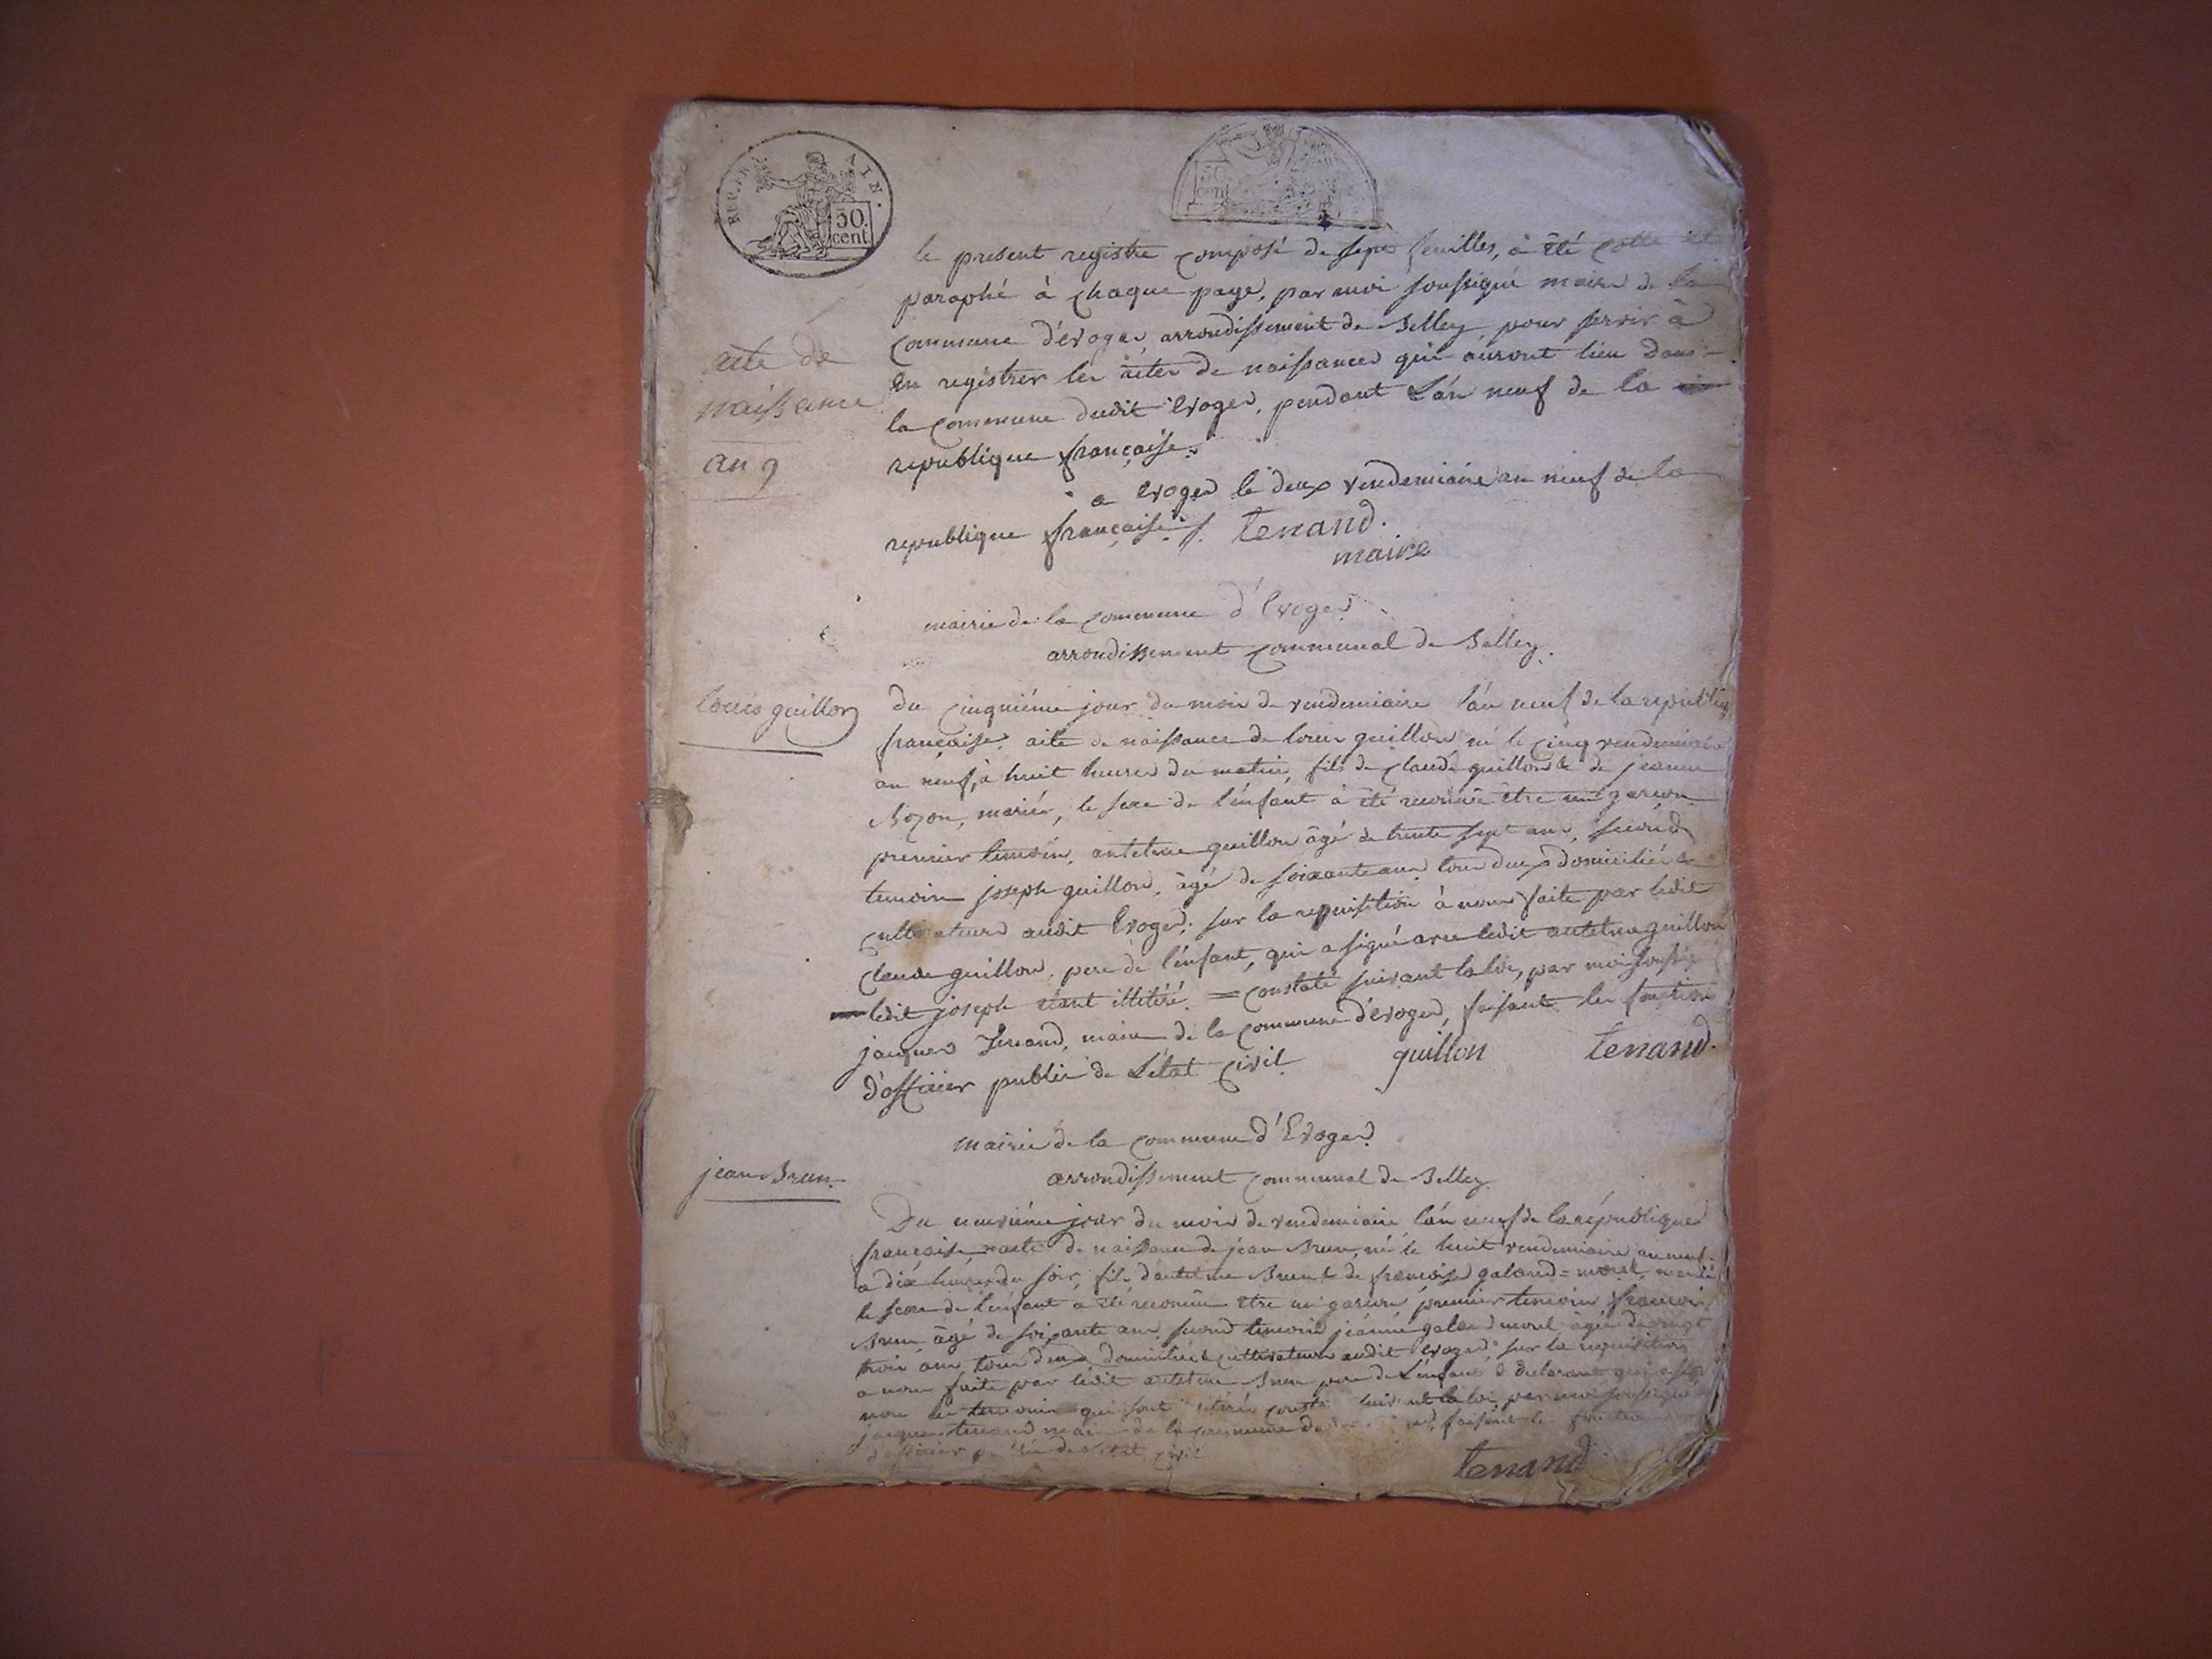 REP. FR.
AIN.
50
cent
50
cent
le present registre composé de sept feuilles, à été cotté et
paraphé à chaque page, par moi soussigné maire de la
commune d'évoges, arrondissement de Belley, pour servir à
en registrer les actes de naissances qui auront lieu dans
la commune dudit Evoges, pendant L'án neuf de la
republique française.
a Evoges le deux vendemiaire an neuf de la
republique française. tenand.
maire
acte de
naissance
an 9
mairie de la commune d'Evoges
arrondissement communal de Belley.
louis guillon
du cinquiéme jour du mois de vendemiaire l'án neuf de la republiq
française, acte de naissance de louis guillon, né le cinq vendemiaire
an neuf, à huit heures du matin, fils de claude guillon & de jeanne
Bozon, mariés, le sexe de l'énfant à été reconnu étre un garcon
premier temoin, antelme guillon âgé de trente sept ans, second
temoin joseph guillon, âgé de soixante ans, tous deux domiciliés &
cultivateurs audit Evoges; sur la requisition à nous faite par ledit
claude guillon, pere de l'énfant, qui a signé avec ledit antelme guillon
ledit joseph étant illitéré = constaté suivant la loi, par moi soussigné
jacques Tenand, maire de la commune d'évoges, faisant les fonctions
d'officier public de L'état civil guillon tenand.
mairie de la commune d'Evoges
arrondissement communal de Belley
jean Brun
Du neuviéme jour du mois de vendemiaire l'án neuf de la république
française acte de naissance de jean Brun, né le huit vendemiaire an neuf
a dix heures du soir, fils d'antelme Brun & de françoise galand = morel, mariés
le sexe de l'enfant à été reconnu étre un garcon, premier temoin françois
Brun âgé de soixante ans, second temoin jeanne galand morel âgée de vingt
trois ans, tous deux domiciliés & cultivateurs audit Evoges, sur la requisition
a nous faite par ledit antelme Brun pere de L'énfant & declarant qui a signé
non les temoins qui sont illitérés suivant la loi par moi soussigné
jacques tenand maire de la commune faisant les fonctions
d'officier public de L'état civil
tenand